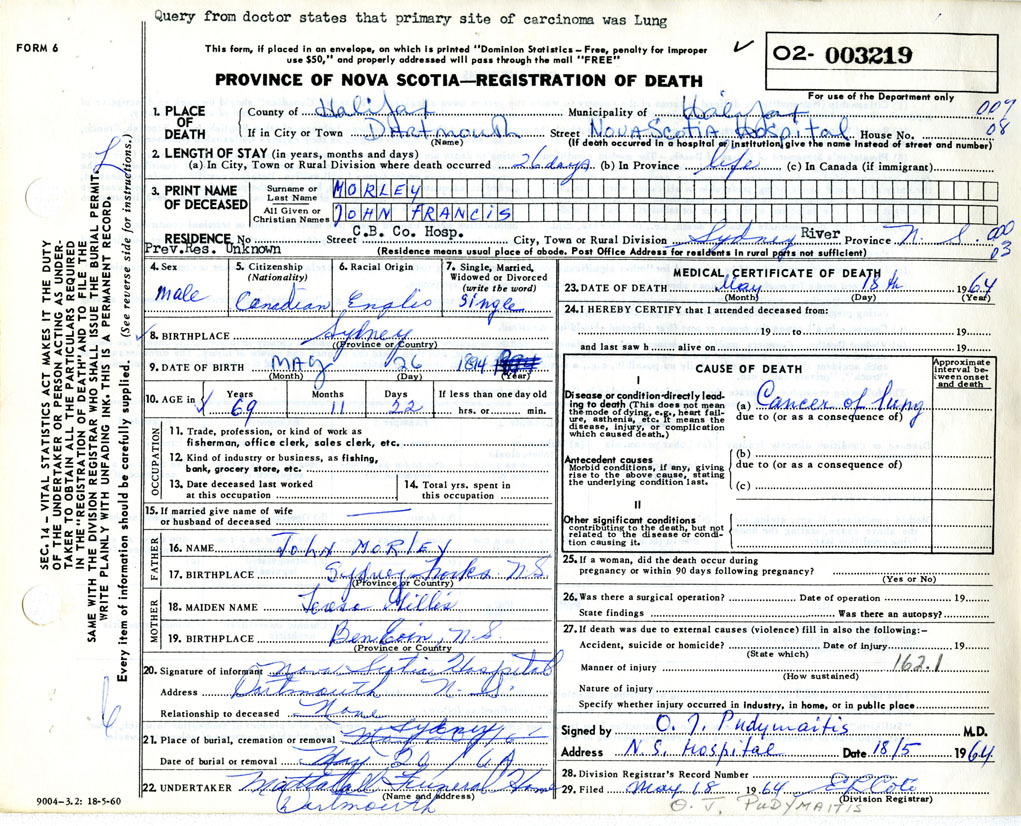 Query from doctor states that primary site of carcinoma was Lung
FORM 6
This form, if placed in an envelope, on which is printed "Dominion Statistics – Free, penalty for improper
use $50," and properly addressed will pass through the mail "FREE"
✓
O2- 003219
PROVINCE OF NOVA SCOTIA—REGISTRATION OF DEATH
For use of the Department only
1. PLACE OF DEATH
County of Halifax Municipality of Halifax 009
If in City or Town Dartmouth Street Nova Scotia Hospital House No. 08
(Name) (If death occurred in a hospital or institution, give the name instead of street and number)
2. LENGTH OF STAY (in years, months and days)
(a) In City, Town or Rural Division where death occurred 26 days (b) In Province life (c) In Canada (if immigrant)
3. PRINT NAME OF DECEASED
Surname or Last Name MORLEY
All Given or Christian Names JOHN FRANCIS
RESIDENCE No. Street C.B. Co. Hosp. City, Town or Rural Division Sydney River Province N. S.
Prev.Res. Unknown (Residence means usual place of abode. Post Office Address for residents in rural parts not sufficient) 03
4. Sex Male
5. Citizenship (Nationality) Canadian
6. Racial Origin Englis
7. Single, Married, Widowed or Divorced (write the word) Single
8. BIRTHPLACE Sydney
(Province or Country)
9. DATE OF BIRTH May 26 1894
(Month) (Day) (Year)
10. AGE in Years 69 Months 11 Days 22 If less than one day old hrs. or min.
OCCUPATION
11. Trade, profession, or kind of work as fisherman, office clerk, sales clerk, etc.
12. Kind of industry or business, as fishing, bank, grocery store, etc.
13. Date deceased last worked at this occupation
14. Total yrs. spent in this occupation
15. If married give name of wife or husband of deceased —
FATHER
16. NAME John MORLEY
17. BIRTHPLACE Sydney Forks N.S
(Province or Country)
MOTHER
18. MAIDEN NAME Teresa Gillis
19. BIRTHPLACE Ben Eoin, N.S.
(Province or Country)
20. Signature of informant Nova Scotia Hospital
Address Dartmouth N. S.
Relationship to deceased None
21. Place of burial, cremation or removal Sydney
Date of burial or removal May 20/64
22. UNDERTAKER Mattatall Funeral Home
(Name and address)
Dartmouth
9004-3.2: 18-5-60
MEDICAL CERTIFICATE OF DEATH
23. DATE OF DEATH May 18th 1964
(Month) (Day) (Year)
24. I HEREBY CERTIFY that I attended deceased from:
19 to 19
and last saw h alive on 19
CAUSE OF DEATH
Approximate interval between onset and death
I
Disease or condition directly leading to death (This does not mean the mode of dying, e.g., heart failure, asthenia, etc. It means the disease, injury, or complication which caused death.)
(a) Cancer of lung
due to (or as a consequence of)
Antecedent causes
Morbid conditions, if any, giving rise to the above cause, stating the underlying condition last.
(b)
due to (or as a consequence of)
(c)
II
Other significant conditions
contributing to the death, but not related to the disease or condition causing it.
25. If a woman, did the death occur during pregnancy or within 90 days following pregnancy?
(Yes or No)
26. Was there a surgical operation? Date of operation 19
State findings Was there an autopsy?
27. If death was due to external causes (violence) fill in also the following:–
Accident, suicide or homicide? Date of injury 19
(State which)
Manner of injury 162.1
(How sustained)
Nature of injury
Specify whether injury occurred in industry, in home, or in public place
Signed by O. J. Pudymaitis M.D.
Address N.S. Hospital Date 18/5 1964
28. Division Registrar's Record Number
29. Filed May 18 1964
(Division Registrar)
O. J. PUDYMAITIS
SEC. 14 – VITAL STATISTICS ACT MAKES IT THE DUTY
OF THE UNDERTAKER OR PERSON ACTING AS UNDER-
TAKER TO OBTAIN ALL THE PARTICULARS REQUIRED
IN THE "REGISTRATION OF DEATH" AND TO FILE THE
SAME WITH THE DIVISION REGISTRAR WHO SHALL ISSUE THE BURIAL PERMIT.
WRITE PLAINLY WITH UNFADING INK. THIS IS A PERMANENT RECORD.
Every item of information should be carefully supplied. (See reverse side for instructions.)